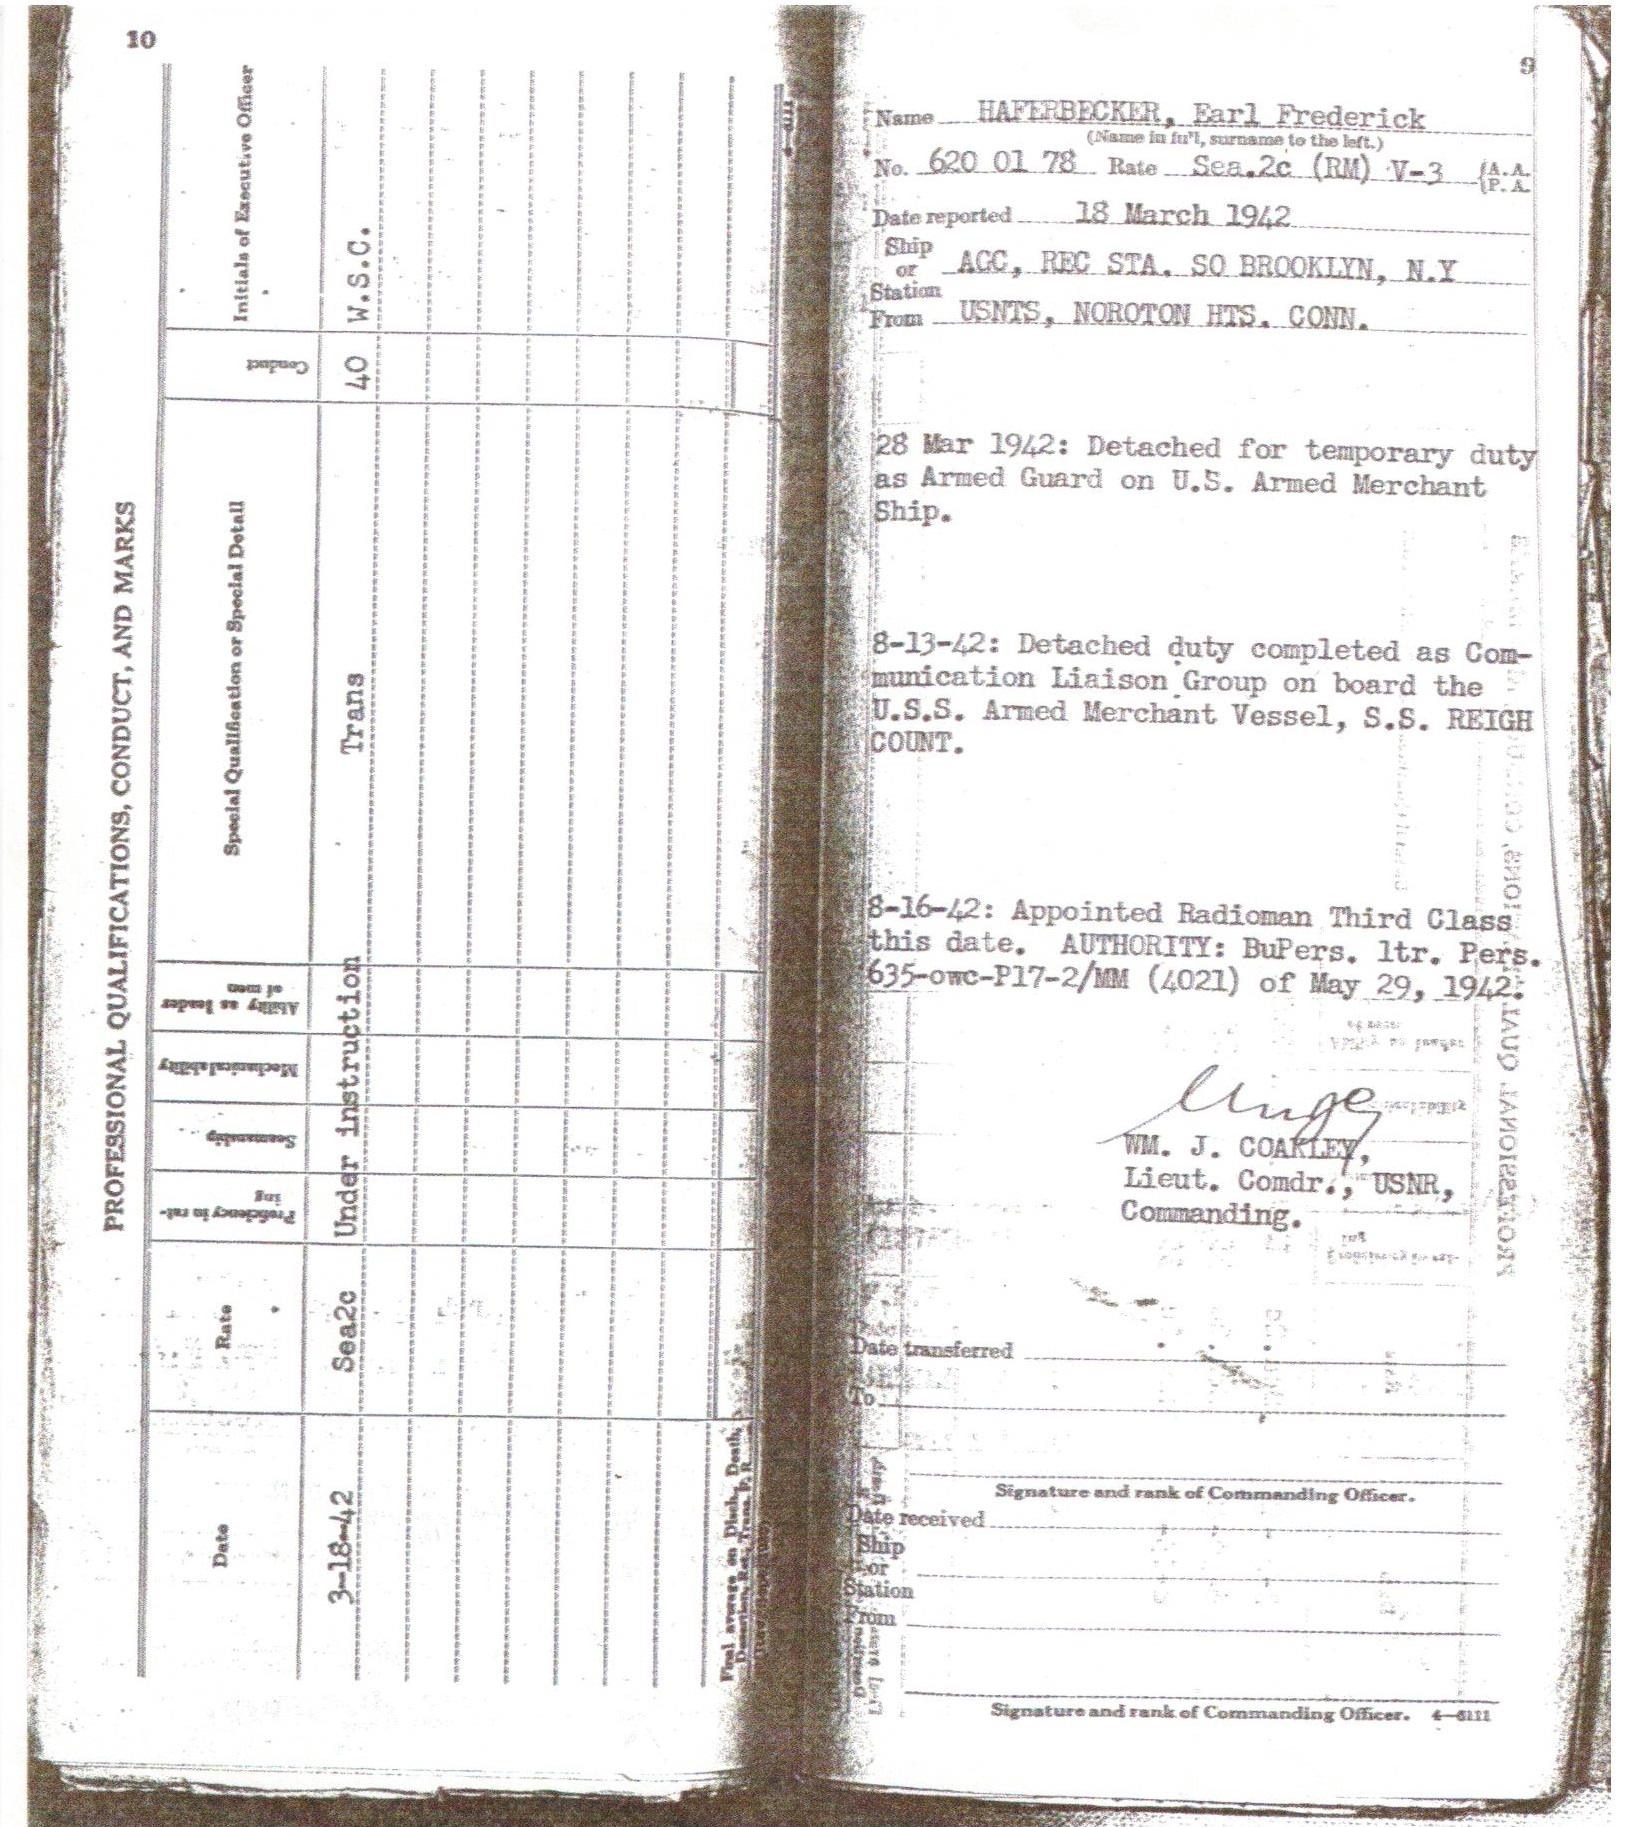 10
PROFESSIONAL QUALIFICATIONS, CONDUCT, AND MARKS
Date
Rate
Proficiency in rat-
ing
Seamanship
Mechanical ability
Ability as leader
of men
Special Qualification or Special Detail
Conduct
Initials of Executive Officer
3-18-42 Sea2c Under instruction Trans 40 W.S.C.
Final average on Disch., Death,
9
Name HAFERBECKER, Earl Frederick
(Name in full, surname to the left.)
No. 620 01 78 Rate Sea.2c (RM) V-3 {A.A.
{P.A.
Date reported 18 March 1942
Ship
or ACC, REC STA. SO BROOKLYN, N.Y
Station
From USNTS, NOROTON HTS. CONN.
28 Mar 1942: Detached for temporary duty
as Armed Guard on U.S. Armed Merchant
Ship.
8-13-42: Detached duty completed as Com-
munication Liaison Group on board the
U.S.S. Armed Merchant Vessel, S.S. REIGH
COUNT.
8-16-42: Appointed Radioman Third Class
this date. AUTHORITY: BuPers. ltr. Pers.
635-owc-P17-2/MM (4021) of May 29, 1942.
WM. J. COAKLEY,
Lieut. Comdr., USNR,
Commanding.
Date transferred
To
Signature and rank of Commanding Officer.
Date received
Ship
or
Station
From
Signature and rank of Commanding Officer. 4—6111